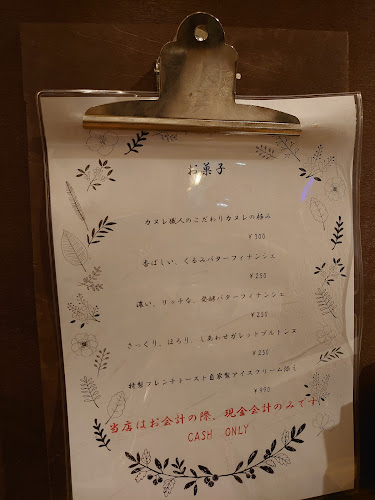 お菓子
カヌレ職人のこだわりカヌレの極み
￥300
香ばしい、くるみバターフィナンシェ
￥250
濃い、リッチな、発酵バターフィナンシェ
￥250
さっくり、ほろり、しあわせガレットブルトンヌ
￥250
特製フレンチトースト自家製アイスクリーム添え
￥950
当店はお会計の際、現金会計のみです。
CASH ONLY